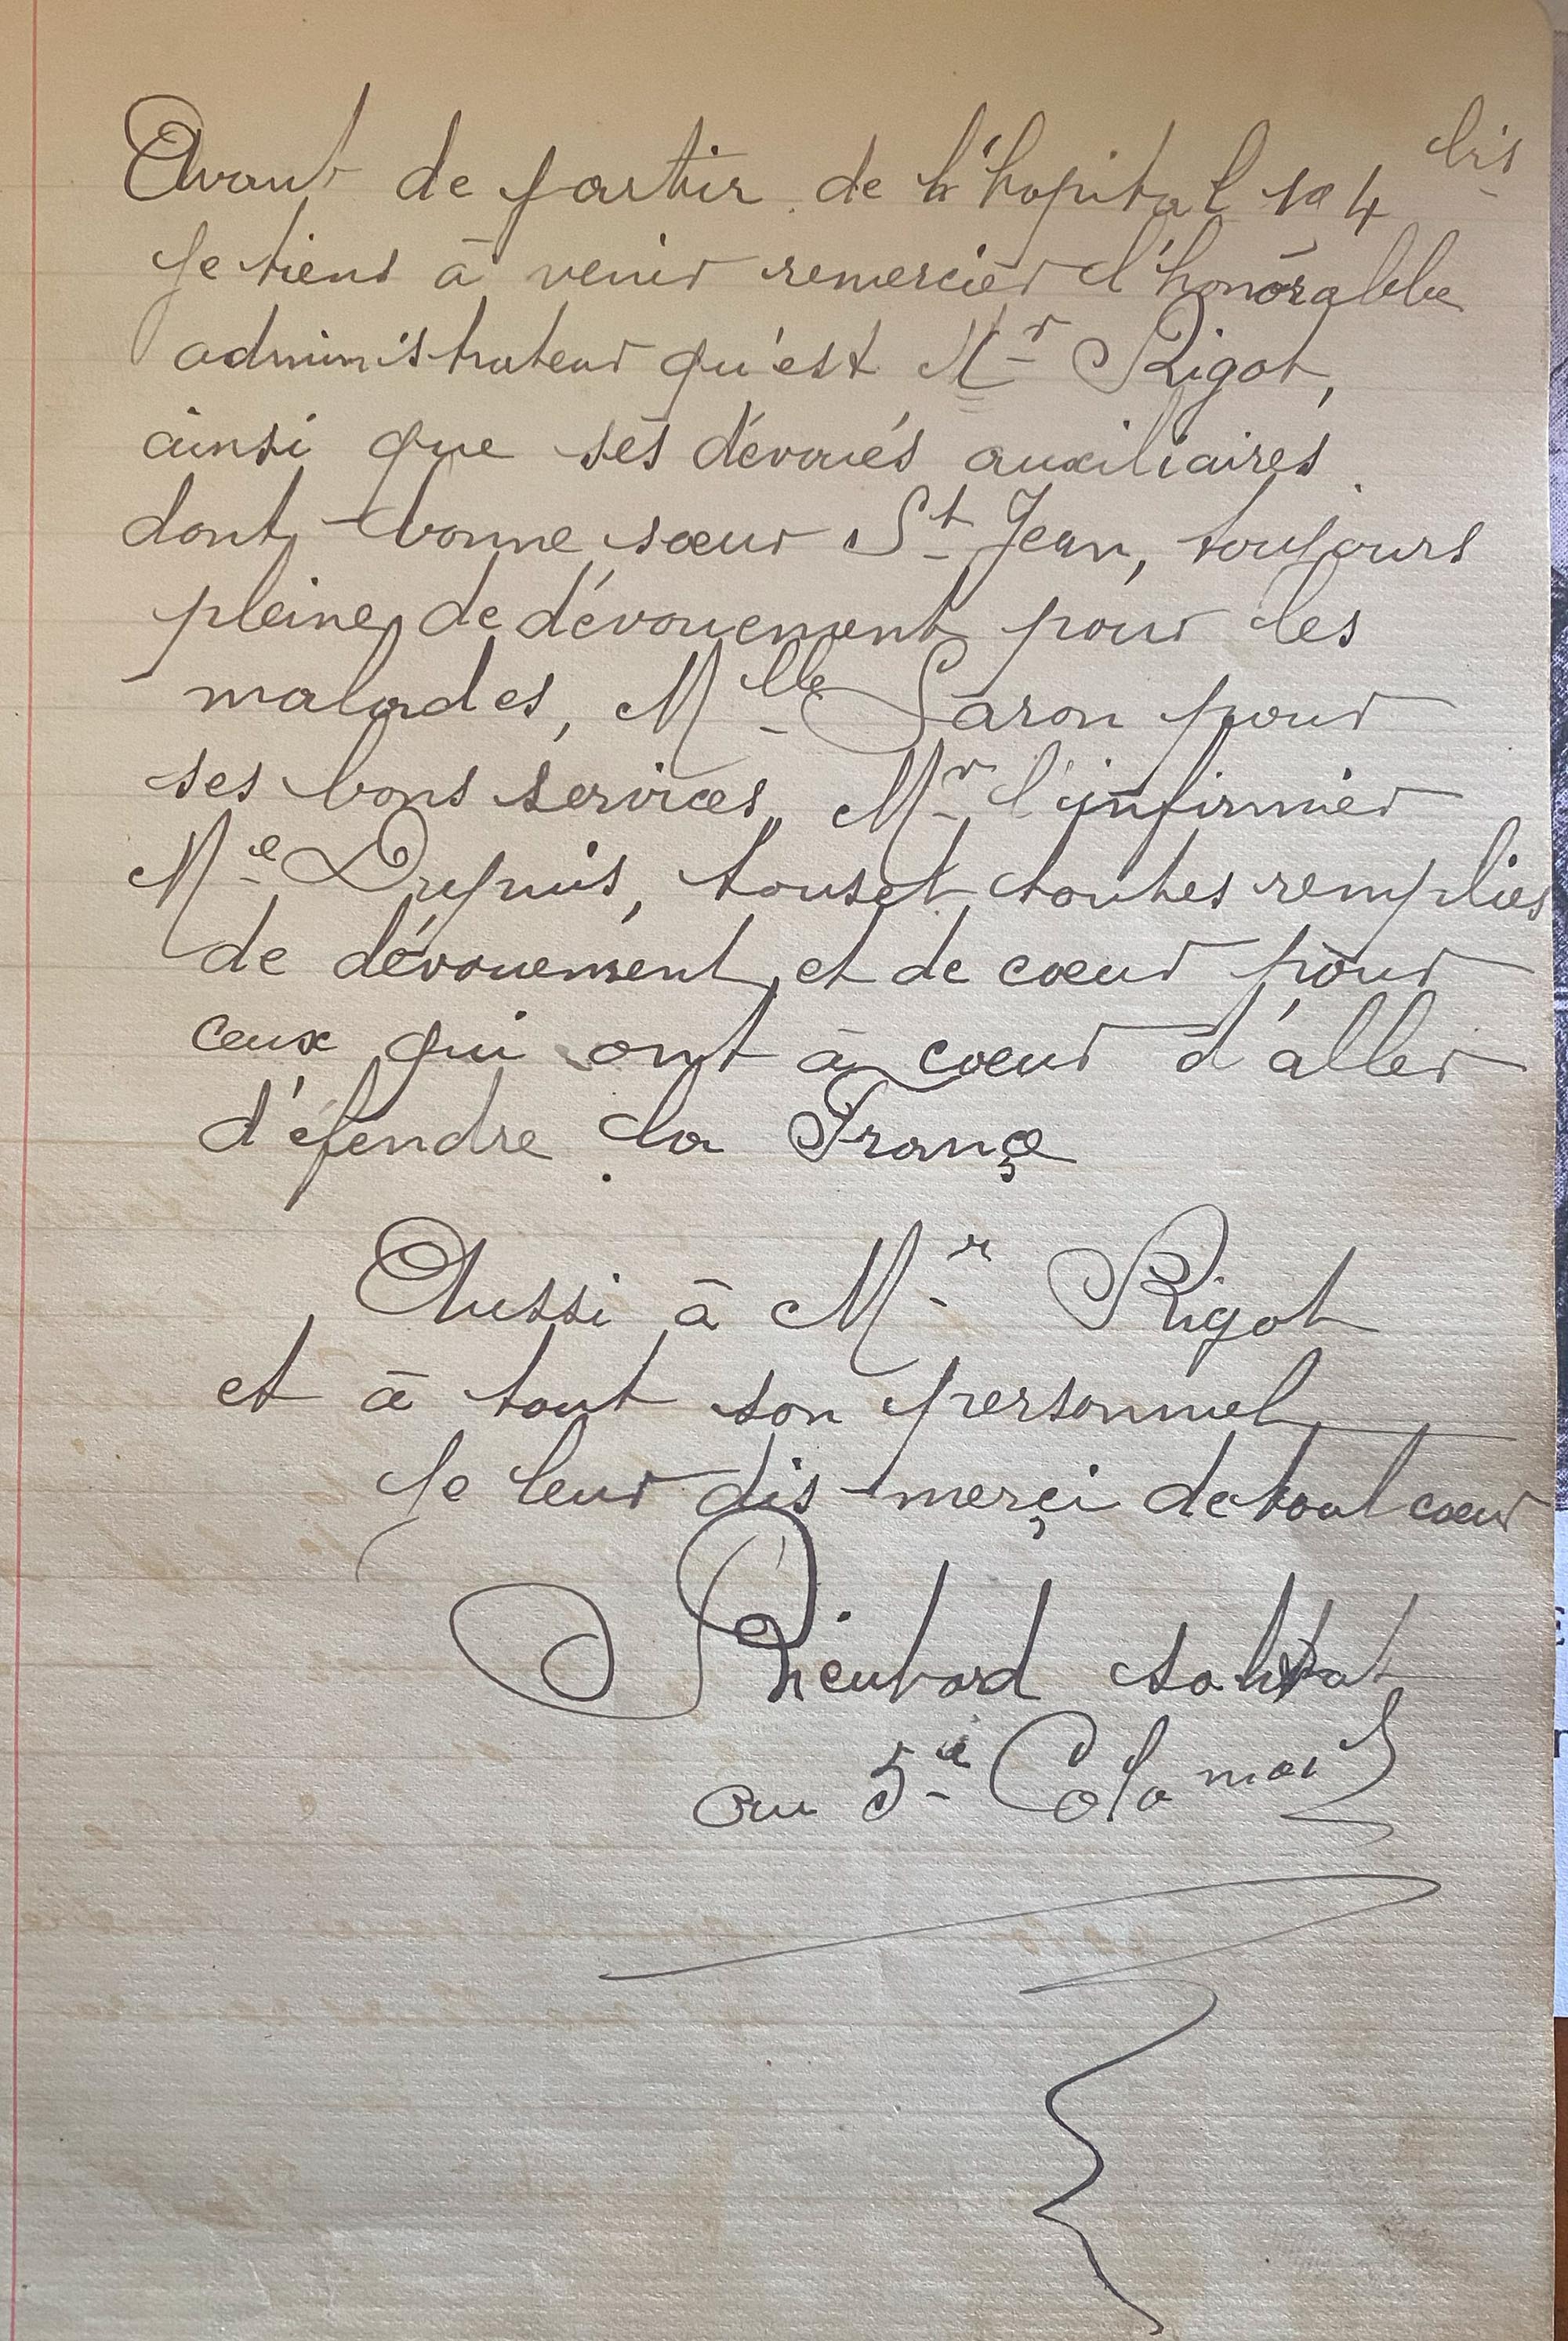 Avant de partir de l'hopital 104 bis
Je tiens à venir remercier l'honorable
administrateur qu'est Mr Rigot,
ainsi que ses dévoués auxiliaires
dont bonne sœur St Jean, toujours
pleine de dévouement pour les
malades, Mlle Saron pour
ses bons services, Mr l'infirmier
Me Dupuis, tous et toutes remplies
de dévouement et de cœur pour
ceux qui ont à cœur d'aller
d'éfendre la Françe
Aussi à Mr Rigot
et à tout son personnel
Je leur dis merçi de tout cœur
Rieubord soldat
au 5e Colo